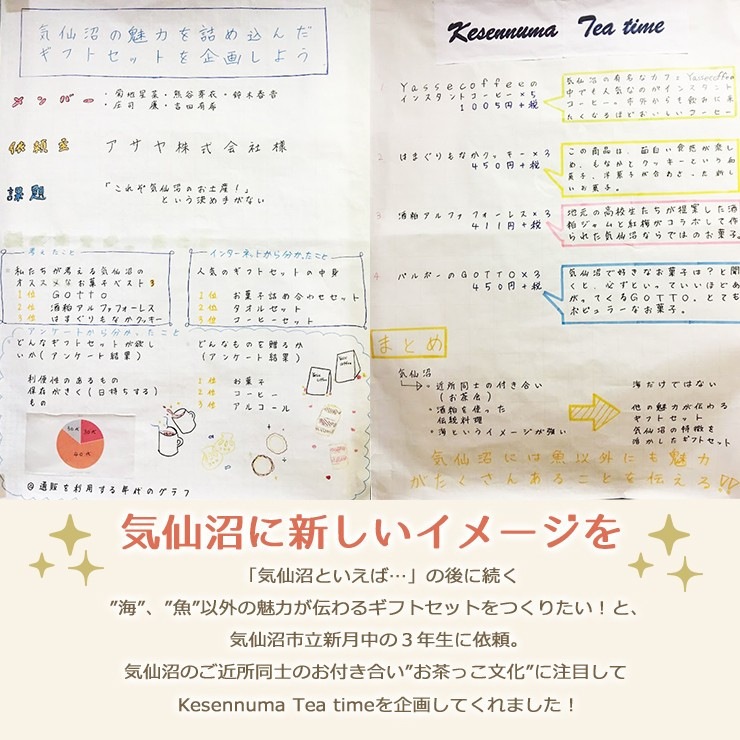 気仙沼の魅力を詰め込んだ
ギフトセットを企画しよう
メンバー
・菊地星菜・熊谷芽衣・鈴木春香
・庄司 廉・吉田有希
依頼主
アサヤ株式会社様
課題
「これぞ気仙沼のお土産!」
という決め手がない
考えたこと
私たちが考える気仙沼の
オススメなお菓子ベスト3
1位 GOTTO
2位 酒粕アルファフォーレス
3位 はまぐりもなかクッキー
インターネットから分かったこと
人気のギフトセットの中身
1位 お菓子詰め合わせセット
2位 タオルセット
3位 コーヒーセット
アンケートから分かったこと
どんなギフトセットが欲し
いか(アンケート結果)
利便性のあるもの
保存がきく(日持ちする)
もの
どんなものを贈るか
(アンケート結果)
1位 お菓子
2位 コーヒー
3位 アルコール
40代
◎通販を利用する年代のグラフ
Kesennuma Tea time
1 Yassecoffeeの
インスタントコーヒー×5
1005円+税
気仙沼の有名なカフェYassecoffee
中でも人気なのがインスタント
コーヒー。市外からも飲みに来
たくなるほどおいしいコーヒー
2 はまぐりもなかクッキー×3
450円+税
この商品は、面白い食感が楽し
め、もなかとクッキーという和
菓子、洋菓子が合わさった新し
いお菓子。
3 酒粕アルファフォーレス×3
411円+税
地元の高校生たちが提案した酒
粕ジャムと紅梅がコラボして作
られた気仙沼ならではのお菓子。
4 パルポーのGOTTO×3
450円+税
気仙沼で好きなお菓子は?と聞
くと、必ずといっていいほどあ
がってくるGOTTO。とても
ポピュラーなお菓子。
まとめ
気仙沼
・近所同士の付き合い
(お茶会)
・酒粕を使った
伝統料理
・海というイメージが強い
海だけではない
他の魅力が伝わる
ギフトセット
気仙沼の特徴を
活かしたギフトセット
気仙沼には魚以外にも魅力
がたくさんあることを伝える!!
気仙沼に新しいイメージを
「気仙沼といえば…」の後に続く
”海”、”魚”以外の魅力が伝わるギフトセットをつくりたい！と、
気仙沼市立新月中の３年生に依頼。
気仙沼のご近所同士のお付き合い”お茶っこ文化”に注目して
Kesennuma Tea timeを企画してくれました！